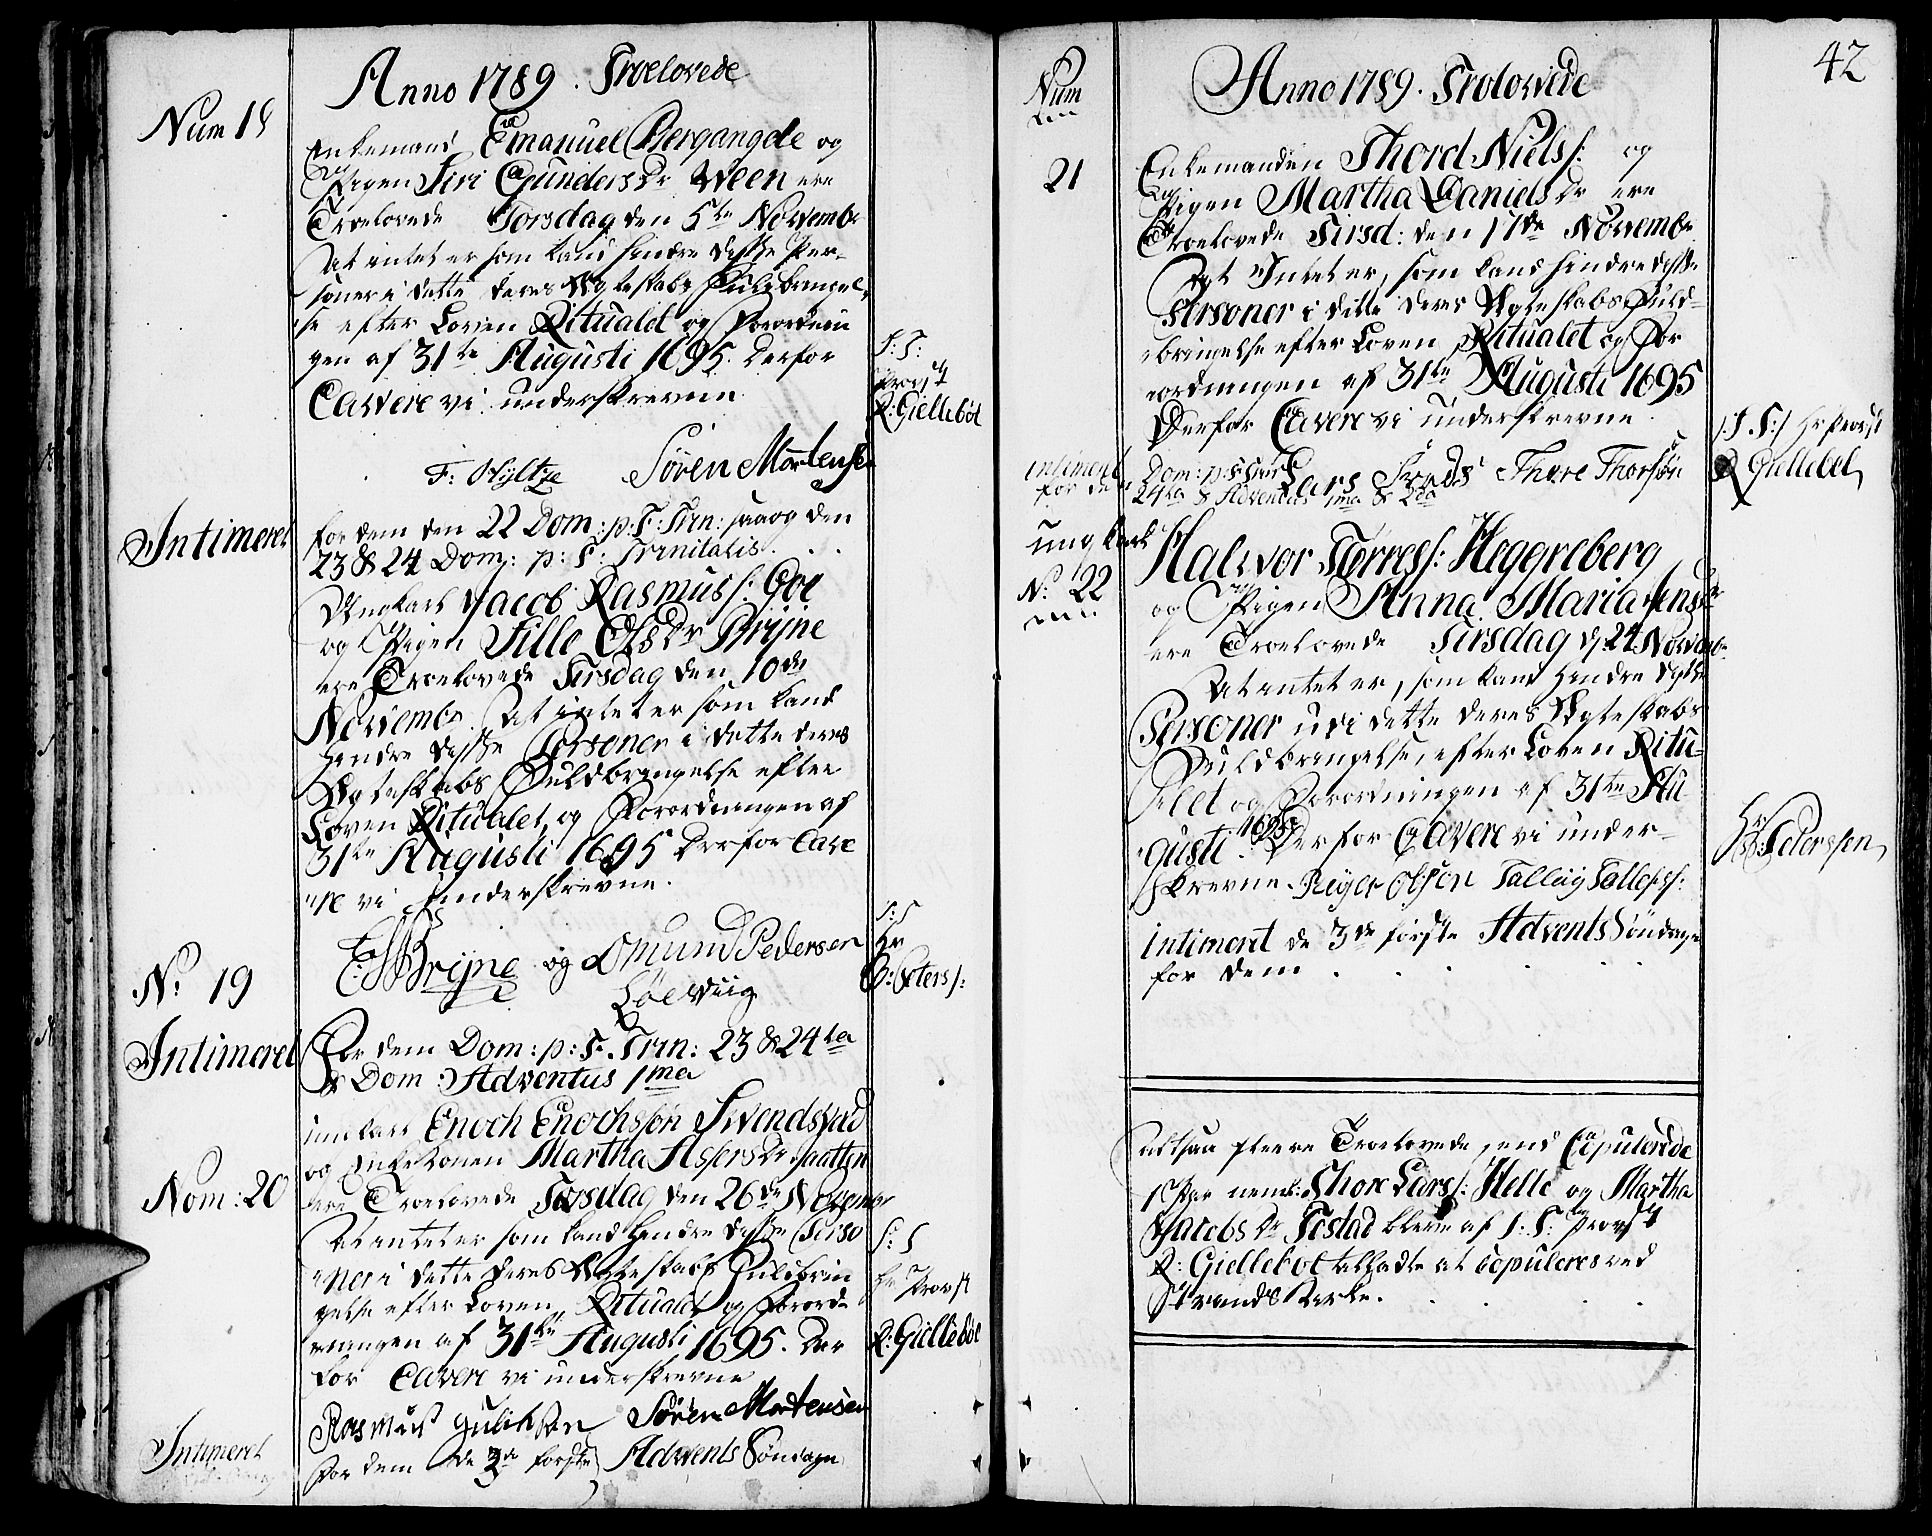 Anno 1789. Troelovede
Num 18
Enkemand Emanuel Bergangde og
Pigen Siri GundersDr Ween ere
Troelovede Torsdag den 5te Novembr
At intet er som kand hindre disse Per-
soner i dette deres Ægteskabs Fuldbringel-
se efter Loven Ritualet og Forordnin
gen af 31te Augusti 1695. derfor
Cavere vi underskrevne
S: T:
Provst
R: Giellebøl
F: Hyltze Søren Mortensen
Intimeret
for dem den 22 Dom: p: F: Trin: saa og den
23 & 24 Dom: p: F: Trinitatis.
Ungkarl Jacob Rasmuss: Goe
og Pigen Sille OlsDr Bryne
ere Troelovede Tirsdag den 10de
Novembr. At intet er som kand
hindre disse Personer i dette deres
Ægteskabs Fuldbringelse efter
Loven Ritualet, og Forordningen af
31te Augusti 1695 derfor Cave
re vi underskrevne.
Bryne og Omund Pedersen
Løevuig
S: T
Hr
B: Peters:
No: 19
Intimeret
For dem Dom: p: F. Trin: 23 & 24ta
& Dom: Adventus 1ma
Nom: 20
unkarl Enoch Enochsøn Svendsvad
og Enkekonen Martha AssersDr Saatten
ere Troelovede Torsdag den 26de Novembr
At intet er som kand hindre disse Perso
ner i dette deres Ægteskabs Fuldbrin
gelse efter Loven Ritualet og Forord-
ningen af 31te Augusti 1695. Der
for Cavere vi underskrevne
S: T
Hr Provst
R: Giellebøl
Rasmus Gulichsen Søren Mortensen
Intimeret
for dem de 3de første Advents Søndage
42
Anno 1789. Trolovede
Num
21
Enkemanden Thord Niels: og
Pigen Martha DanielsDr ere
Troelovede Tirsd: den 17de Novembr
At Intet er, som kand hindre disse
Personer i dette deres Ægteskabs Fuld-
bringelse efter Loven, Ritualet og For
ordningen af 31te Augusti 1695
Derfor Cavere vi underskrevne.
S: T: Hr Provst
R Giellebøl
Lars Thore Thorsøn
intimeret
for dem
Dom: p: F:
24ta & Adventus 1ma & 2da
ung karl
No: 22
Halvor Torress: Heggreberg
og Pigen Anna Maria JensDr
ere Troelovede Tirsdag d: 24 Novembr
At intet er, som kand hindre disse
Personer udi dette deres Ægteskabs
Fuldbringelse, efter Loven Ritu-
alet og Forordningen af 31te Au-
gusti 1695. Derfor Cavere vi under-
skrevne. Reyer Olsøn Tallag Tolleps:
Hr
B: Pederssen
intimeret de 3de første Advents Søndage
for dem
altsaa fleere Troelovede, end Copulerede
1 Par neml: Thore Lars: Helle og Martha
JacobsDr Tostad bleve af S. T. Provst
R: Giellebøl tilladte at Copuleres ved
Strands Kirke.